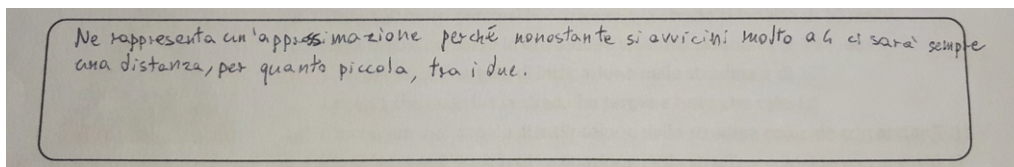 Ne rappresenta un'approssimazione perché nonostante si avvicini molto a 4 ci sarà sempre
una distanza, per quanto piccola, tra i due.